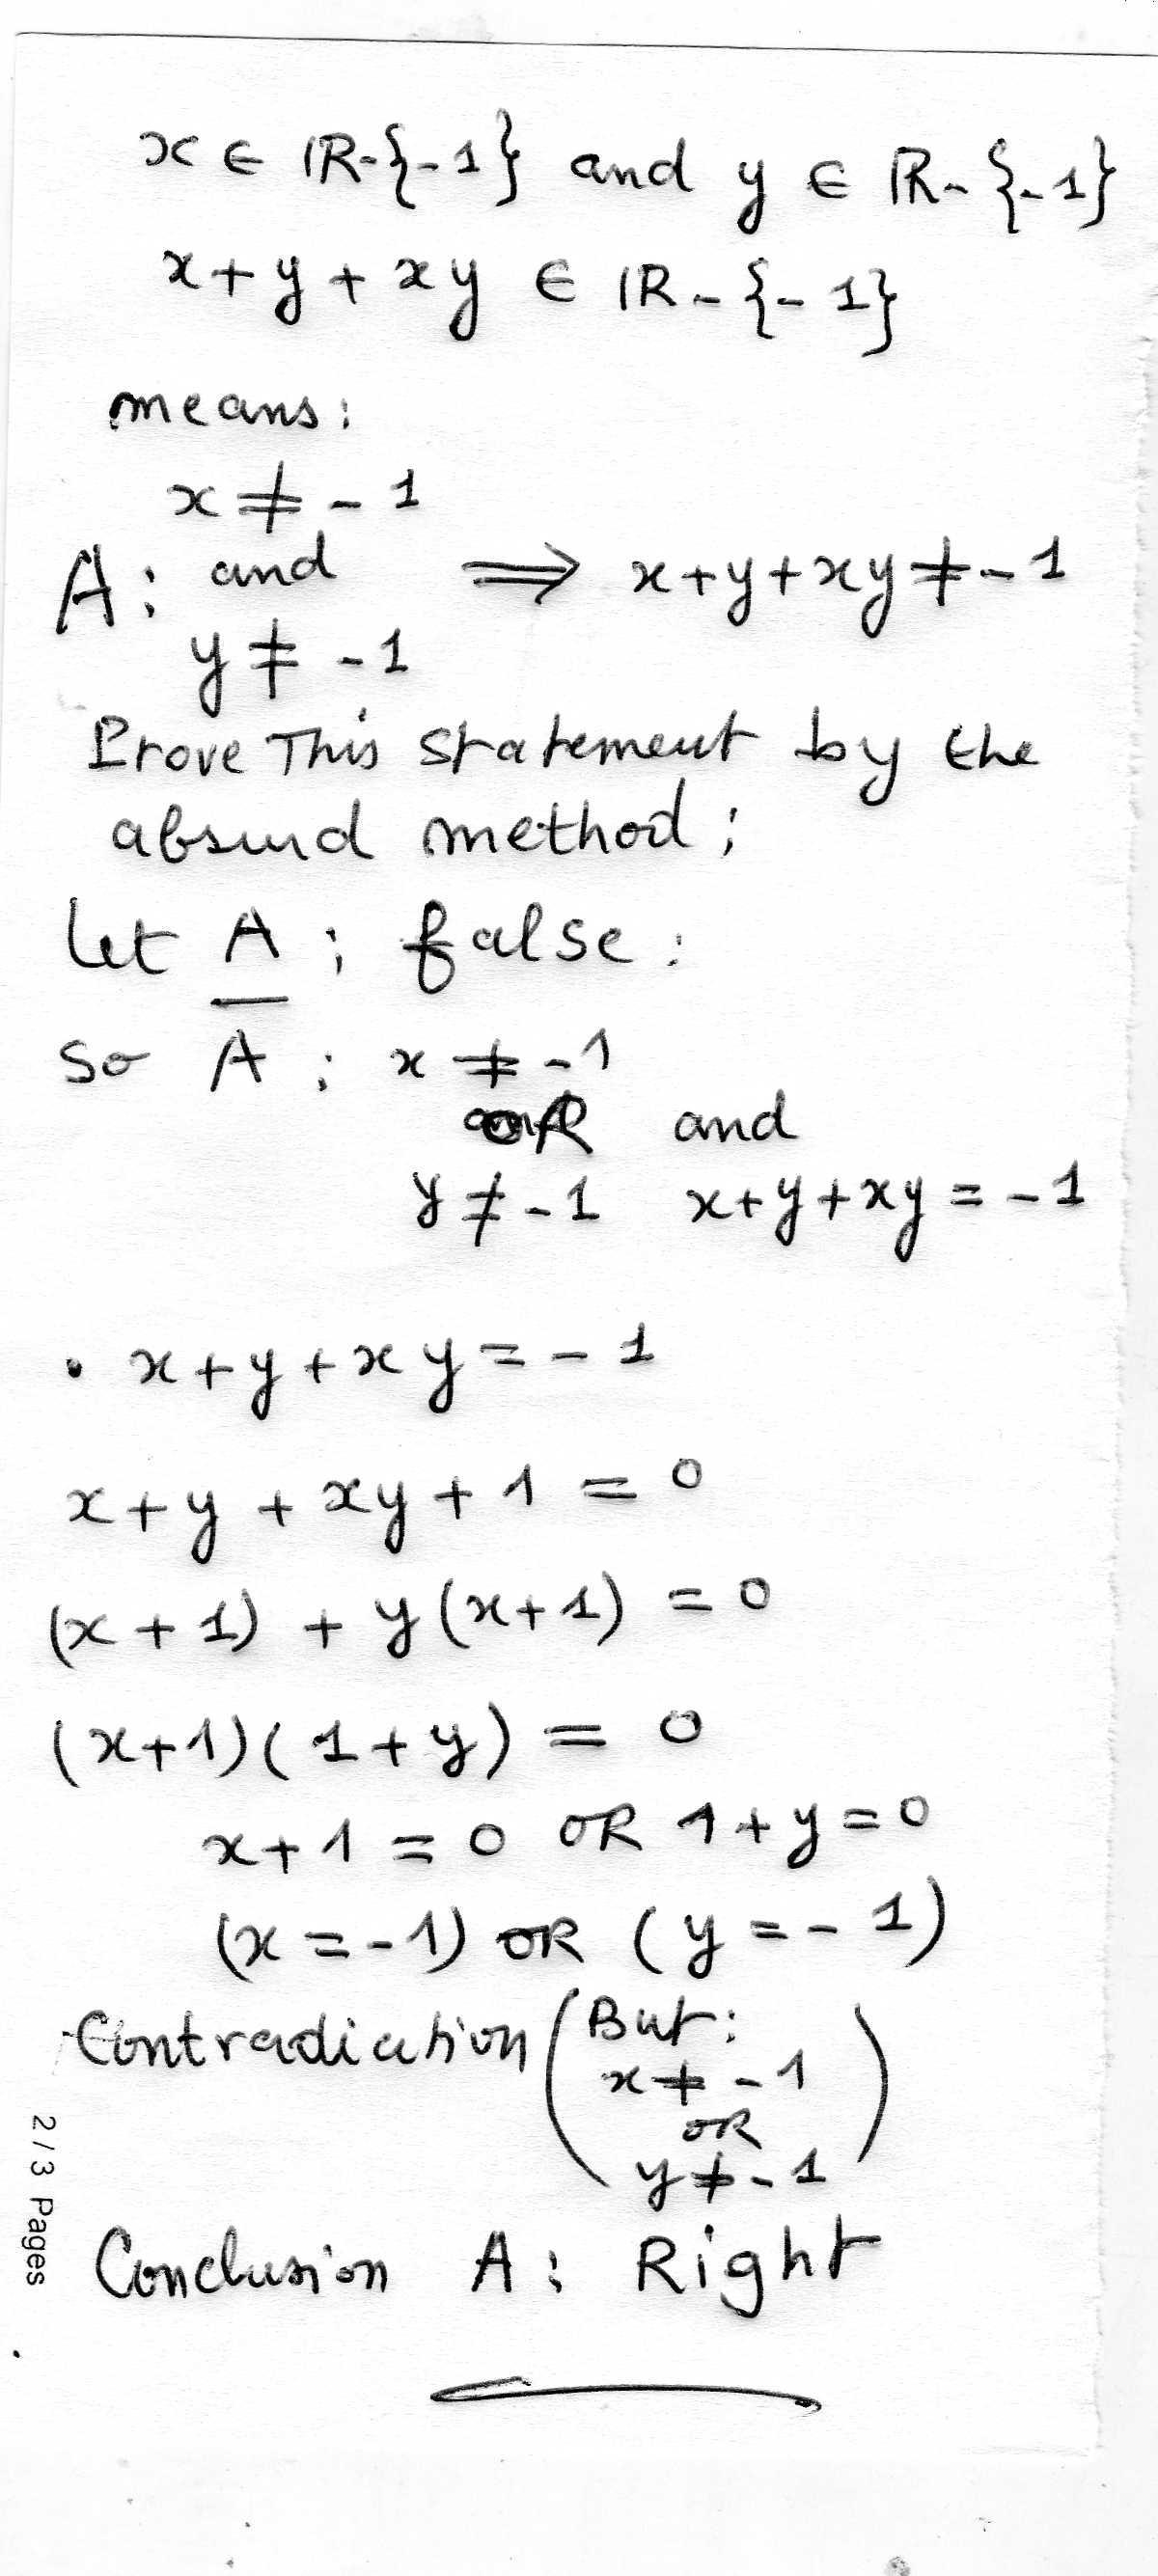 x ∈ ℝ-{-1} and y ∈ ℝ-{-1}
x+y+xy ∈ ℝ-{-1}
means:
x ≠ -1
A: and ⟹ x+y+xy ≠ -1
y ≠ -1
Prove This statement by the
absurd method;
Let A ; false :
So A̅ : x ≠ -1
OR and
y ≠ -1 x+y+xy = -1
• x+y+xy = -1
x+y+xy+1 = 0
(x+1) + y(x+1) = 0
(x+1)(1+y) = 0
x+1 = 0 OR 1+y = 0
(x = -1) OR (y = -1)
Contradiction (But:
x ≠ -1
OR
y ≠ -1)
2 / 3 Pages
Conclusion A: Right